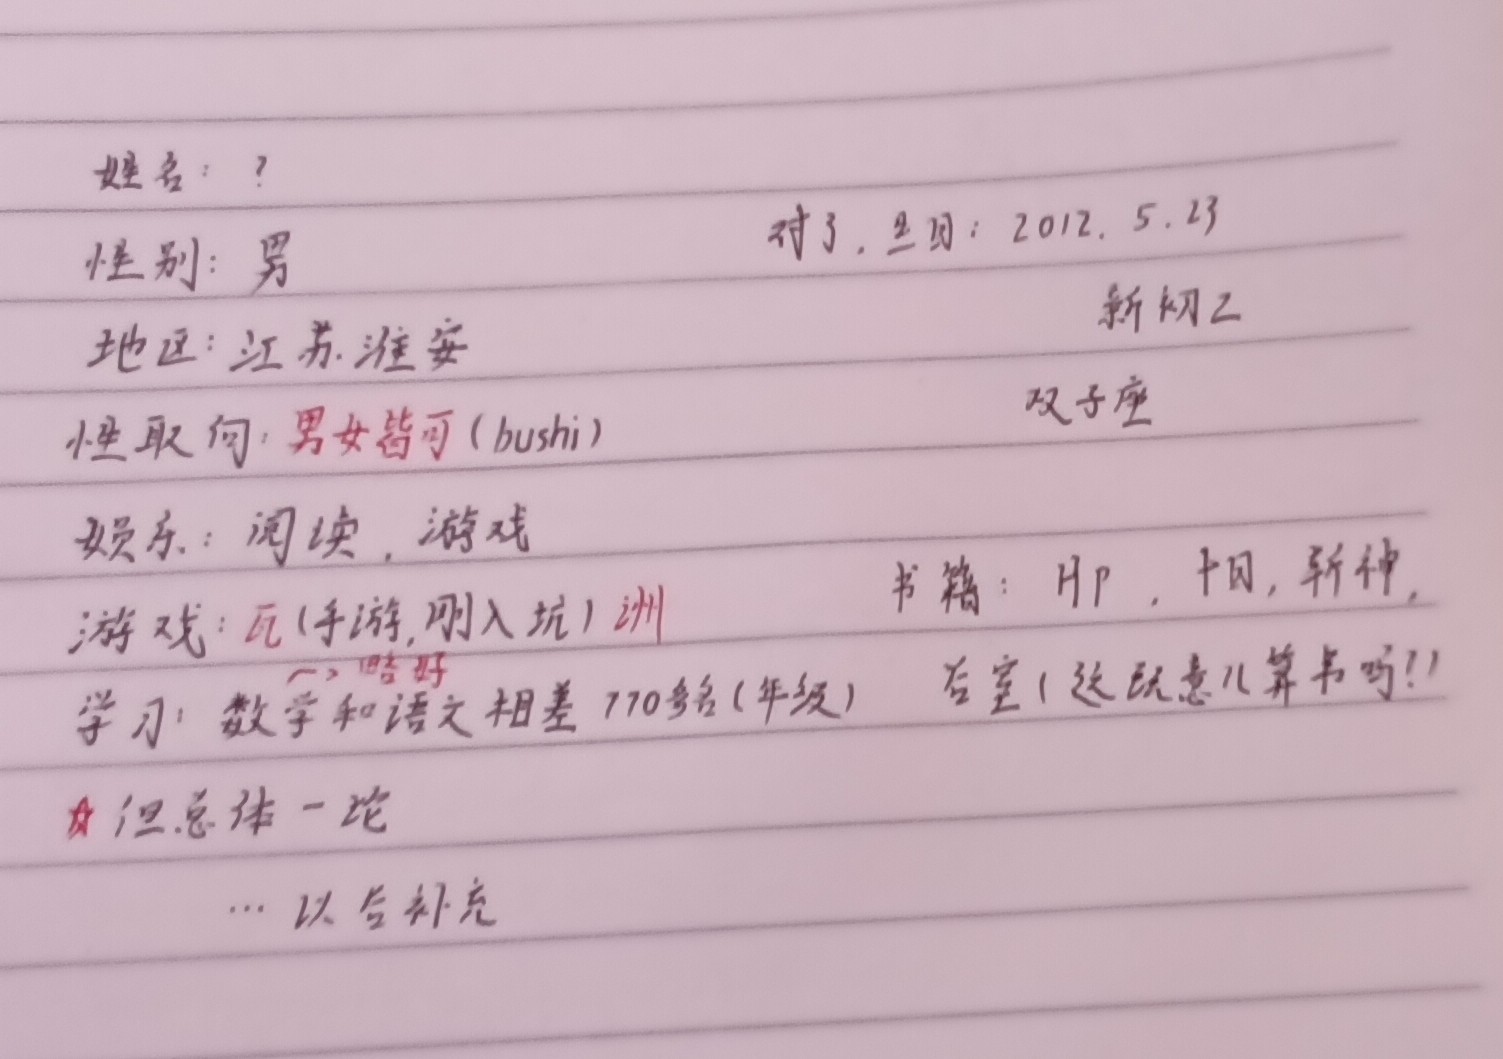 姓名：？
性别：男
对了，生日：2012.5.23
地区：江苏淮安
新初乙
性取向：男女皆可（bushi）
双子座
娱乐：阅读，游戏
游戏：瓦（手游，刚入坑）洲
书籍：HP，十日，斩神，
后室（这玩意儿算书吗？）
略好
学习：数学和语文相差770多名（年级）
☆但总体一坨
…以后补充